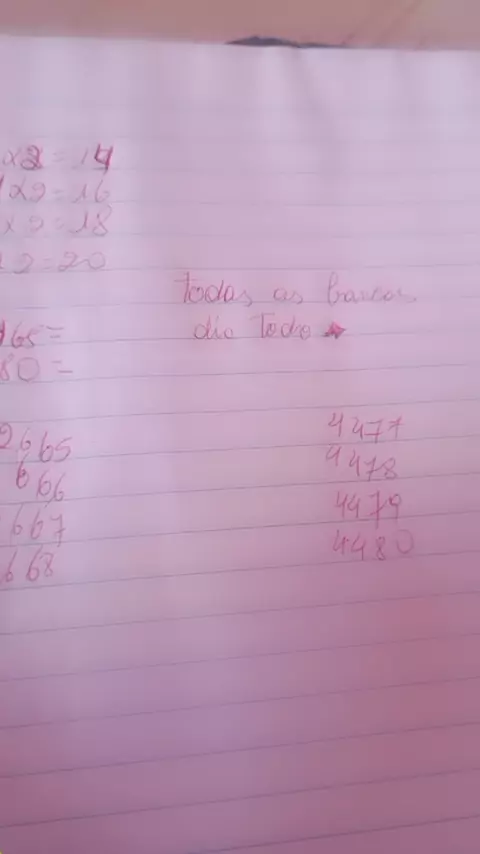 x2 = 14
x2 = 16
x 2 = 18
2 = 20
Todas as bancas
dia Todo
165 =
80 =
2665
666
667
668
4477
4478
4479
4480